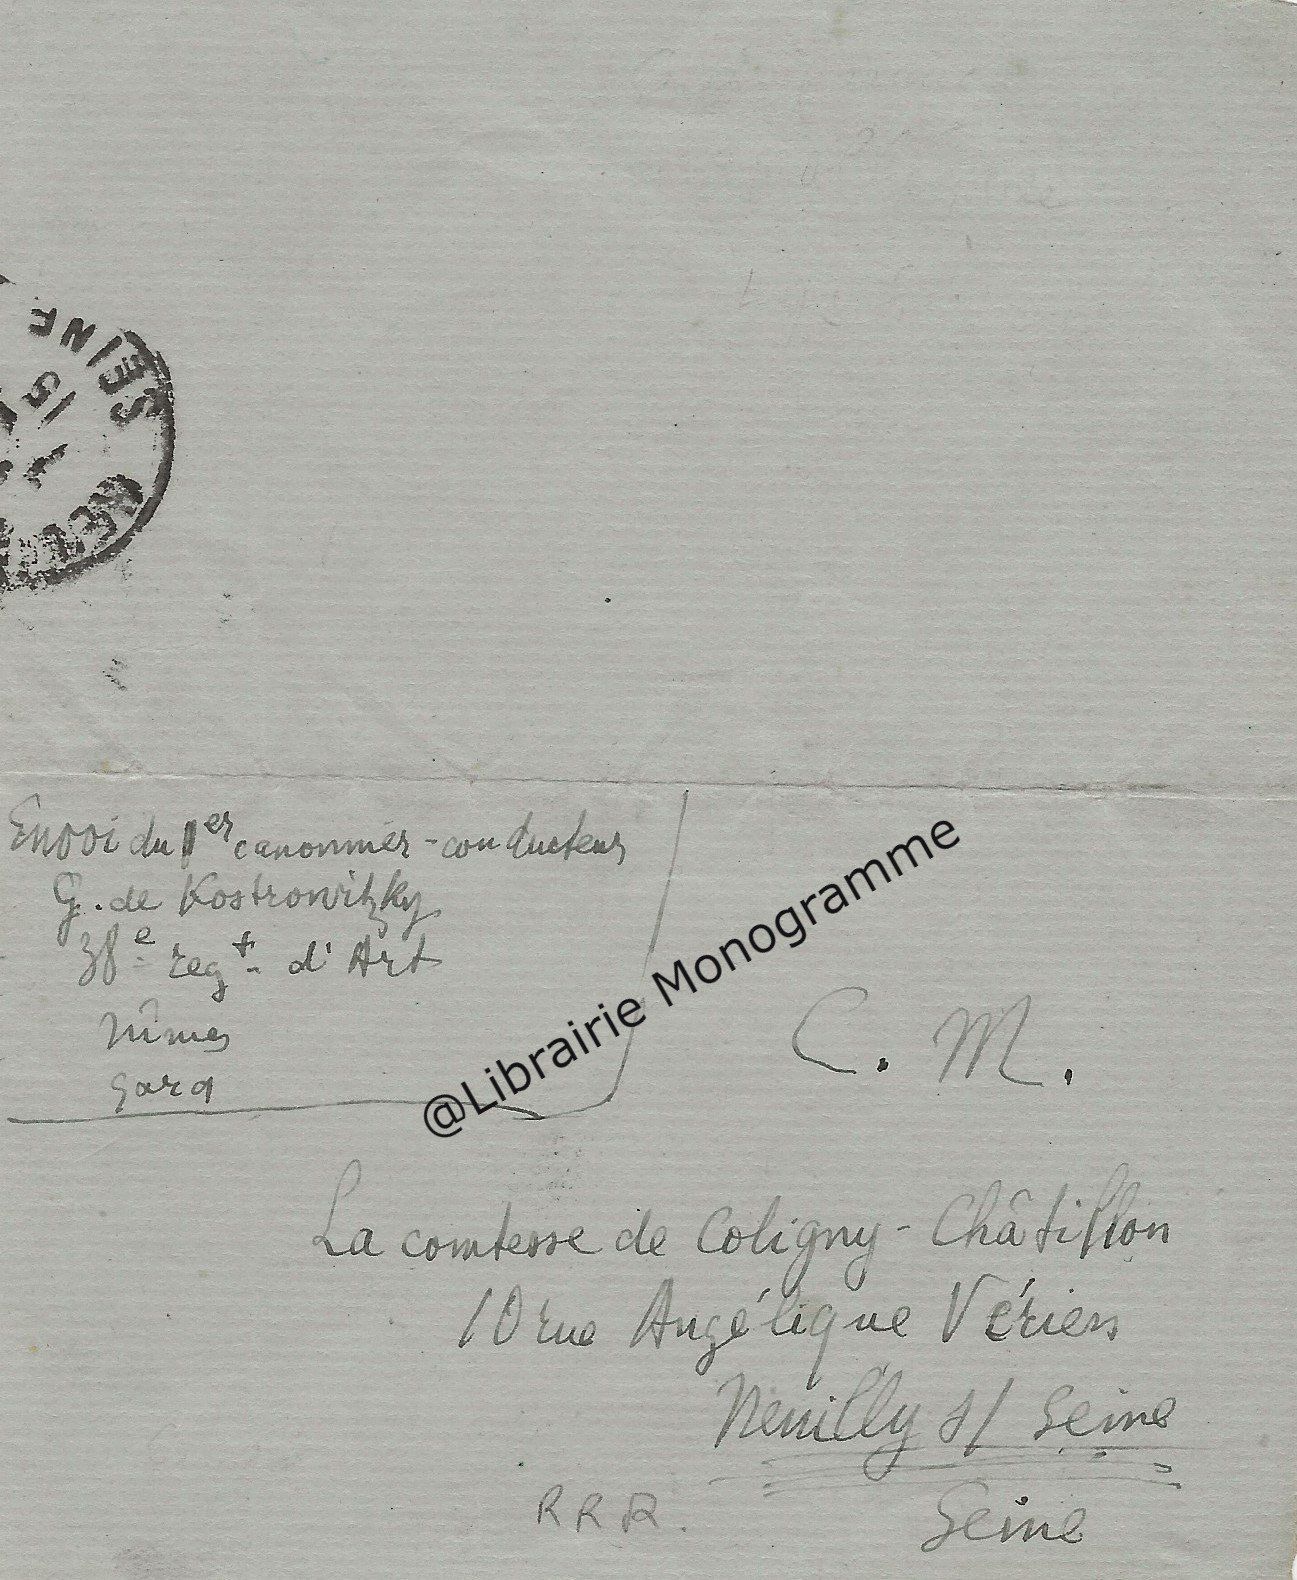 SEINE
15
NEU
Envoi du 1er canonnier-conducteur
G. de Kostrowitzky
38e regt d'Art
Nîmes
Gard
@Librairie Monogramme
C. M.
La comtesse de Coligny-Châtillon
10 rue Angélique Vérien
Neuilly s/ Seine
Seine
R R R.